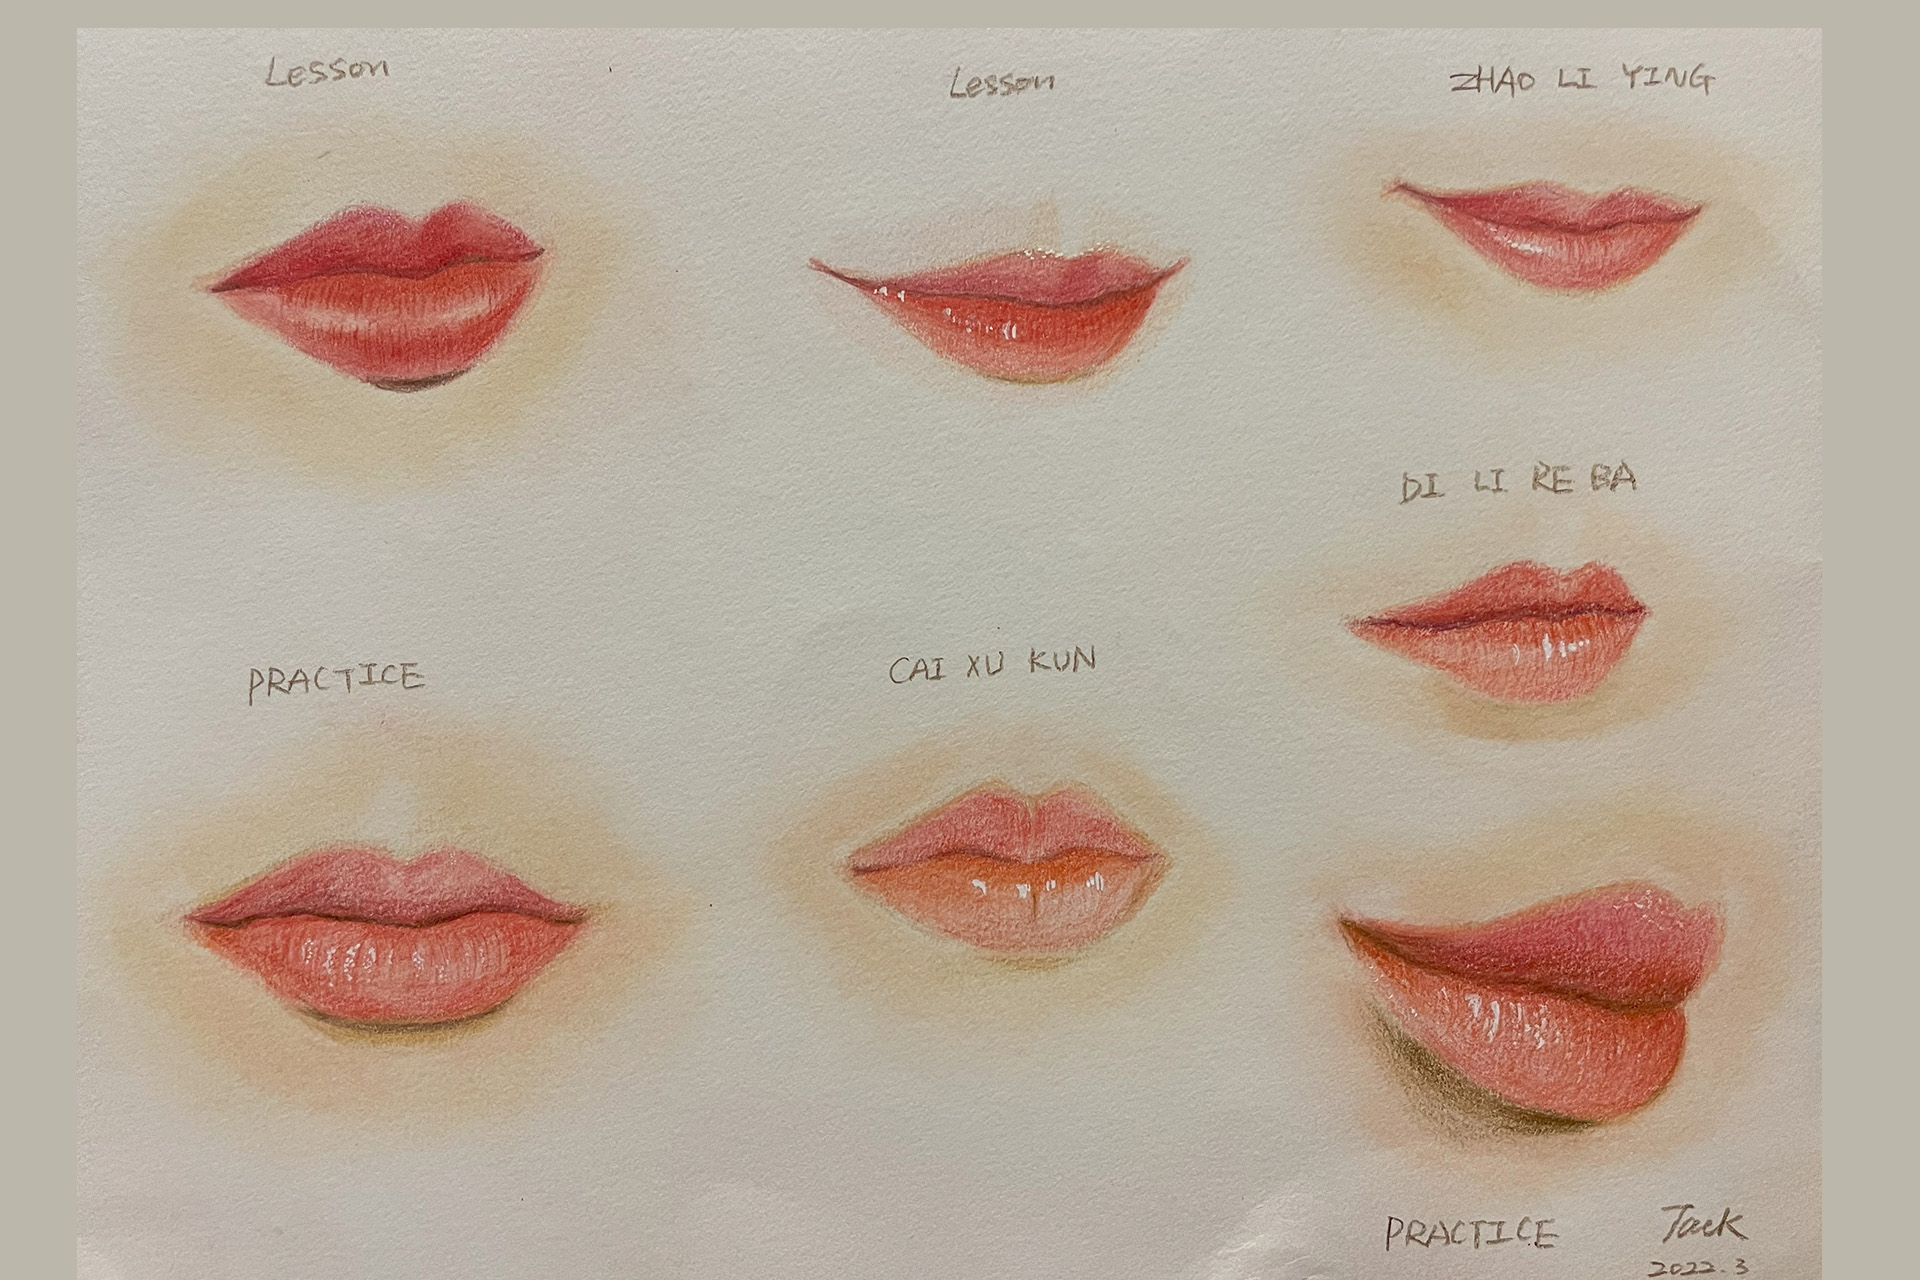 Lesson
Lesson
ZHAO LI YING
DI LI RE BA
PRACTICE
CAI XU KUN
PRACTICE
Jack
2022.3